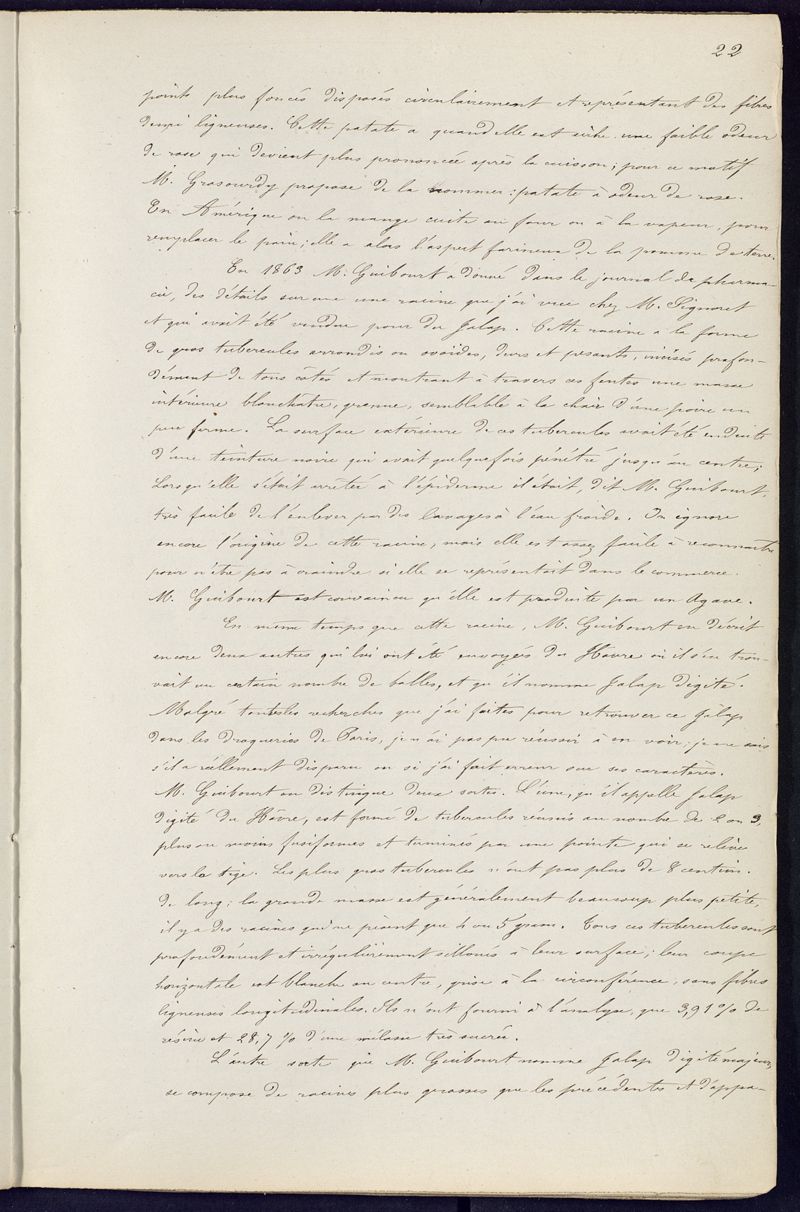 22
points plus foncés disposés circulairement et représentant des fibres
demi ligneuses. Cette patate a quand elle est sèche une faible odeur
de rose qui devient plus prononcée après la cuisson; pour ce motif
M. Grosourdy propose de la nommer: patate à odeur de rose.
En Amérique on la mange cuite au four ou à la vapeur, pour
remplacer le pain; elle a alors l'aspect farineux de la pomme de terre.
En 1863 M. Guibourt a donné dans le journal de pharma-
cie, des détails sur une racine que j'ai vue chez M. Pignoret
et qui avait été vendue pour du Jalap. Cette racine a la forme
de gros tubercules arrondis ou ovoïdes, durs et pesants, incisés profon-
dément de tous côtés et montrant à travers ces fentes une masse
intérieure blanchâtre, grenue, semblable à la chair d'une poire un
peu ferme. La surface extérieure de ces tubercules avait été enduite
d'une teinture noire qui avait quelquefois pénétré jusqu'au centre;
Lorsqu'elle s'était arrêtée à l'épiderme il était, dit M. Guibourt,
très facile de l'enlever par des lavages à l'eau froide. On ignore
encore l'origine de cette racine, mais elle est assez facile à reconnaître
pour n'être pas à craindre si elle se représentait dans le commerce.
M. Guibourt est convaincu qu'elle est produite par un Agave.
En même temps que cette racine, M. Guibourt en décrit
encore deux autres qui lui ont été envoyés du Havre où il s'en trou-
vait un certain nombre de balles, et qu'il nomme Jalap digité.
Malgré toutes les recherches que j'ai faites pour retrouver ce Jalap
dans les drogueries de Paris, je n'ai pas pu réussir à en voir; je ne sais
s'il a réellement disparu ou si j'ai fait erreur sur ses caractères.
M. Guibourt en distingue deux sortes. L'une, qu'il appelle Jalap
digité du Hâvre, est formé de tubercules réunis au nombre de 2 ou 3,
plus ou moins fusiformes et terminés par une pointe qui se relève
vers la tige. Les plus gros tubercules n'ont pas plus de 8 centim.
de long; la grande masse est généralement beaucoup plus petite,
il y a des racines qui ne pèsent que 4 ou 5 gram. Tous ces tubercules sont
profondément et irrégulièrement sillonés à leur surface; leur coupe
horizontale est blanche au centre, grise à la circonférence, sans fibres
ligneuses longitudinales. Ils n'ont fourni à l'analyse, que 3,91% de
résine et 28,7% d'une mélasse très sucrée.
L'autre sorte que M. Guibourt nomme Jalap digité majeur,
se compose de racines plus grosses que les précédentes et d'appa-